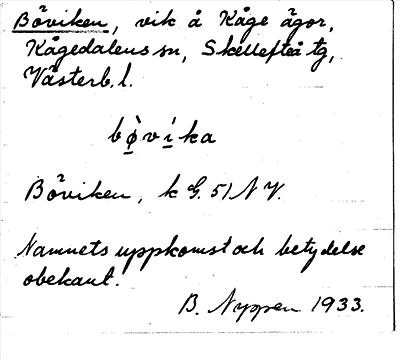 Böviken, vik å Kåge ägor,
Kågedalens sn, Skellefteå tg,
Västerb. l.
bø̀víka
Böviken, k G. 51 N V.
Namnets uppkomst och betydelse
obekant.
B. Nyppen 1933.